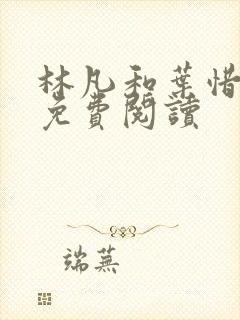 林凡和葉惜
免費閱讀
端蕪